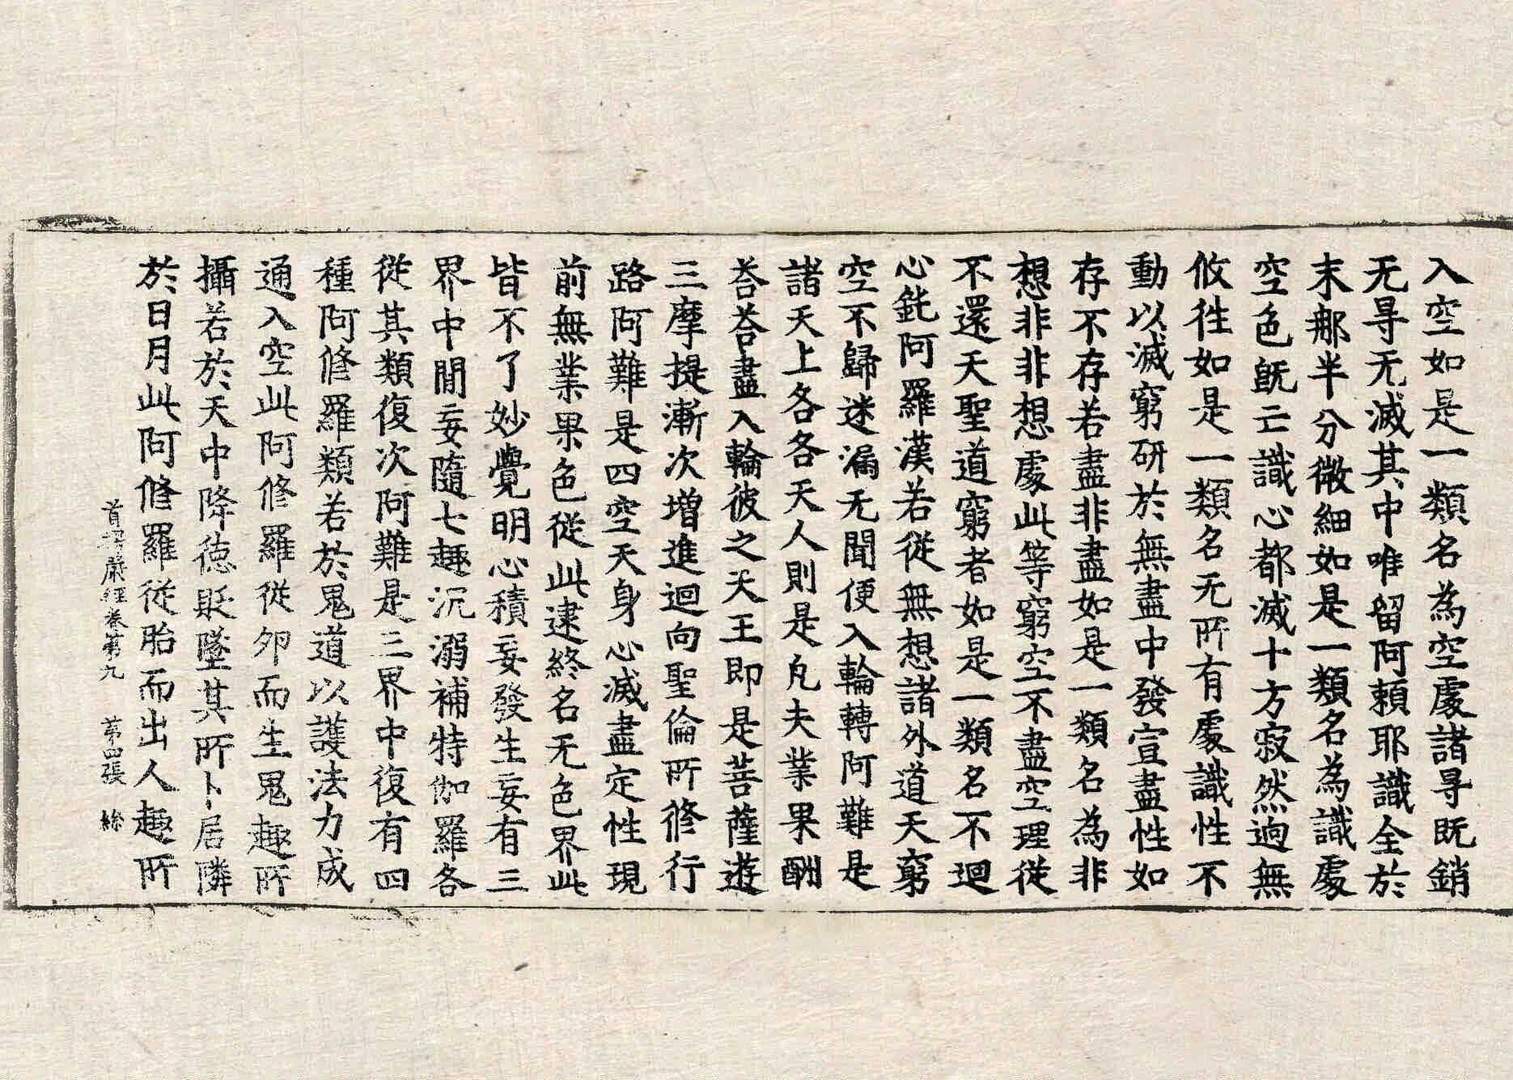 入空如是一類名為空處諸㝵既銷
无㝵无滅其中唯留阿賴耶識全於
末那半分微細如是一類名為識處
空色旣亡識心都滅十方寂然逈無
攸往如是一類名无所有處識性不
動以滅窮研於無盡中發宣盡性如
存不存若盡非盡如是一類名為非
想非非想處此等窮空不盡空理從
不還天聖道窮者如是一類名不迴
心鈍阿羅漢若從無想諸外道天窮
空不歸迷漏无聞便入輪轉阿難是
諸天上各各天人則是凡夫業果酬
荅荅盡入輪彼之天王即是菩薩遊
三摩提漸次增進迴向聖倫所修行
路阿難是四空天身心滅盡定性現
前無業果色從此逮終名无色界此
皆不了妙覺明心積妄發生妄有三
界中閒妄隨七趣沉溺補特伽羅各
從其類復次阿難是三界中復有四
種阿修羅類若於鬼道以護法力成
通入空此阿修羅從夘而生鬼趣所
攝若於天中降德貶墜其所卜居隣
於日月此阿修羅從胎而出人趣所
首楞嚴經卷第九 第四張